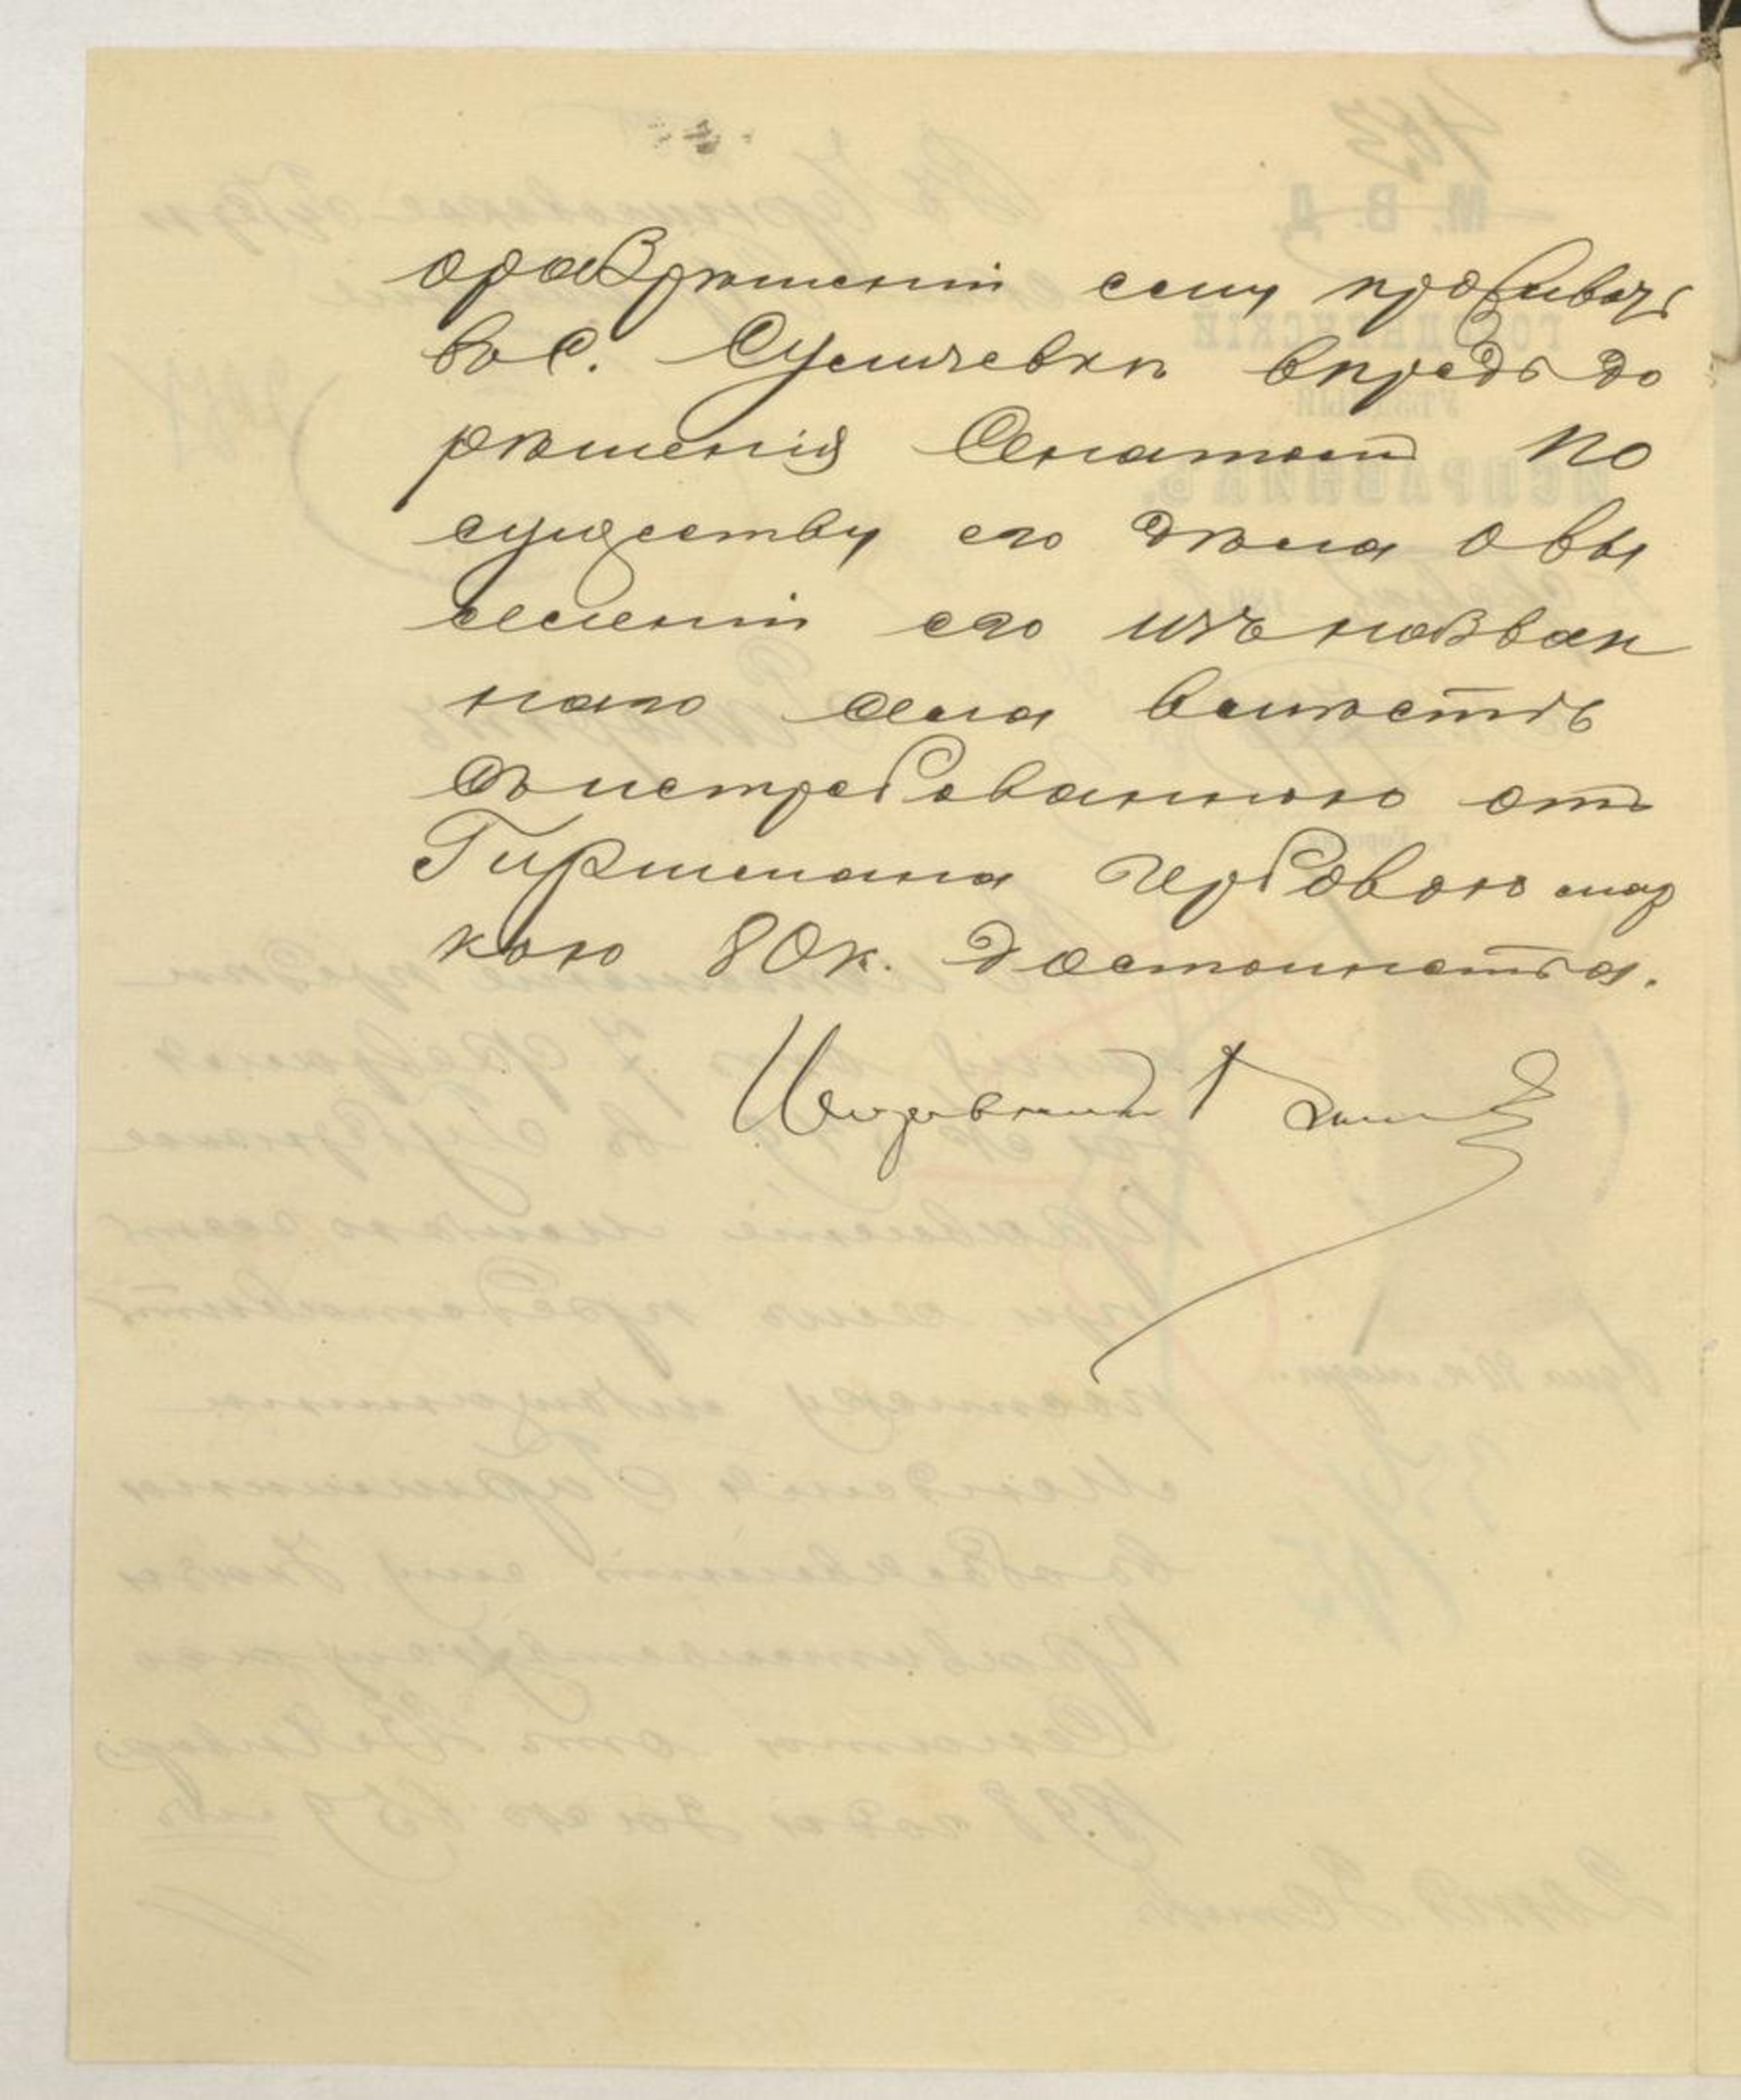 о разрѣшеніи ему проживать
въ с. Сушчевкѣ впредь до
рѣшенія Сенатомъ по
существу его дѣла о вы
селеніи его изъ назван
наго села вмѣстѣ
съ истребованною отъ
Гиршмана гербовою мар
кою 80 к. достоинства.
Исправникъ